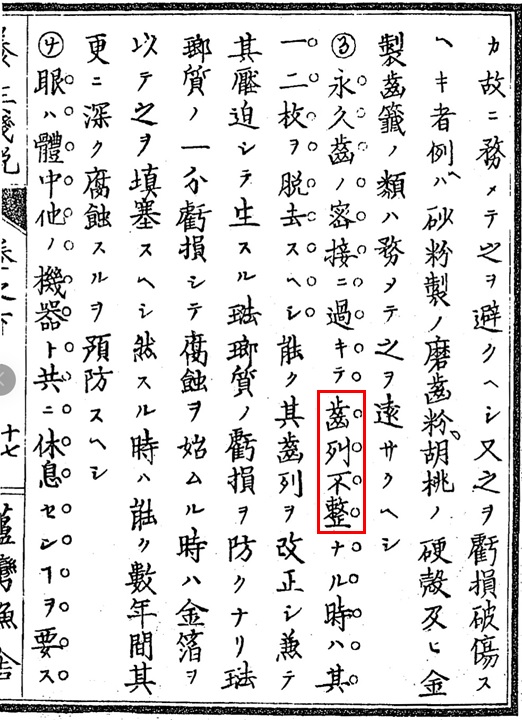 カ故ニ務メテ之ヲ避クヘシ又之ヲ虧損破傷ス
ヘキ者例ハ砂粉製ノ磨齒粉胡桃ノ硬殻及ヒ金
製齒籤ノ類ハ務メテ之ヲ遠サクヘシ
③永久齒ノ密接ニ過キテ齒列不整ナル時ハ其
一二枚ヲ脱去スヘシ能ク其齒列ヲ改正シ兼テ
其壓迫シテ生スル琺瑯質ノ虧損ヲ防クナリ琺
瑯質ノ一分虧損シテ腐蝕ヲ始ムル時ハ金箔ヲ
以テ之ヲ填塞スヘシ然スル時ハ能ク數年間其
更ニ深ク腐蝕スルヲ預防スヘシ
④眼ハ體中他ノ機器ト共ニ休息センヿヲ要ス
十七